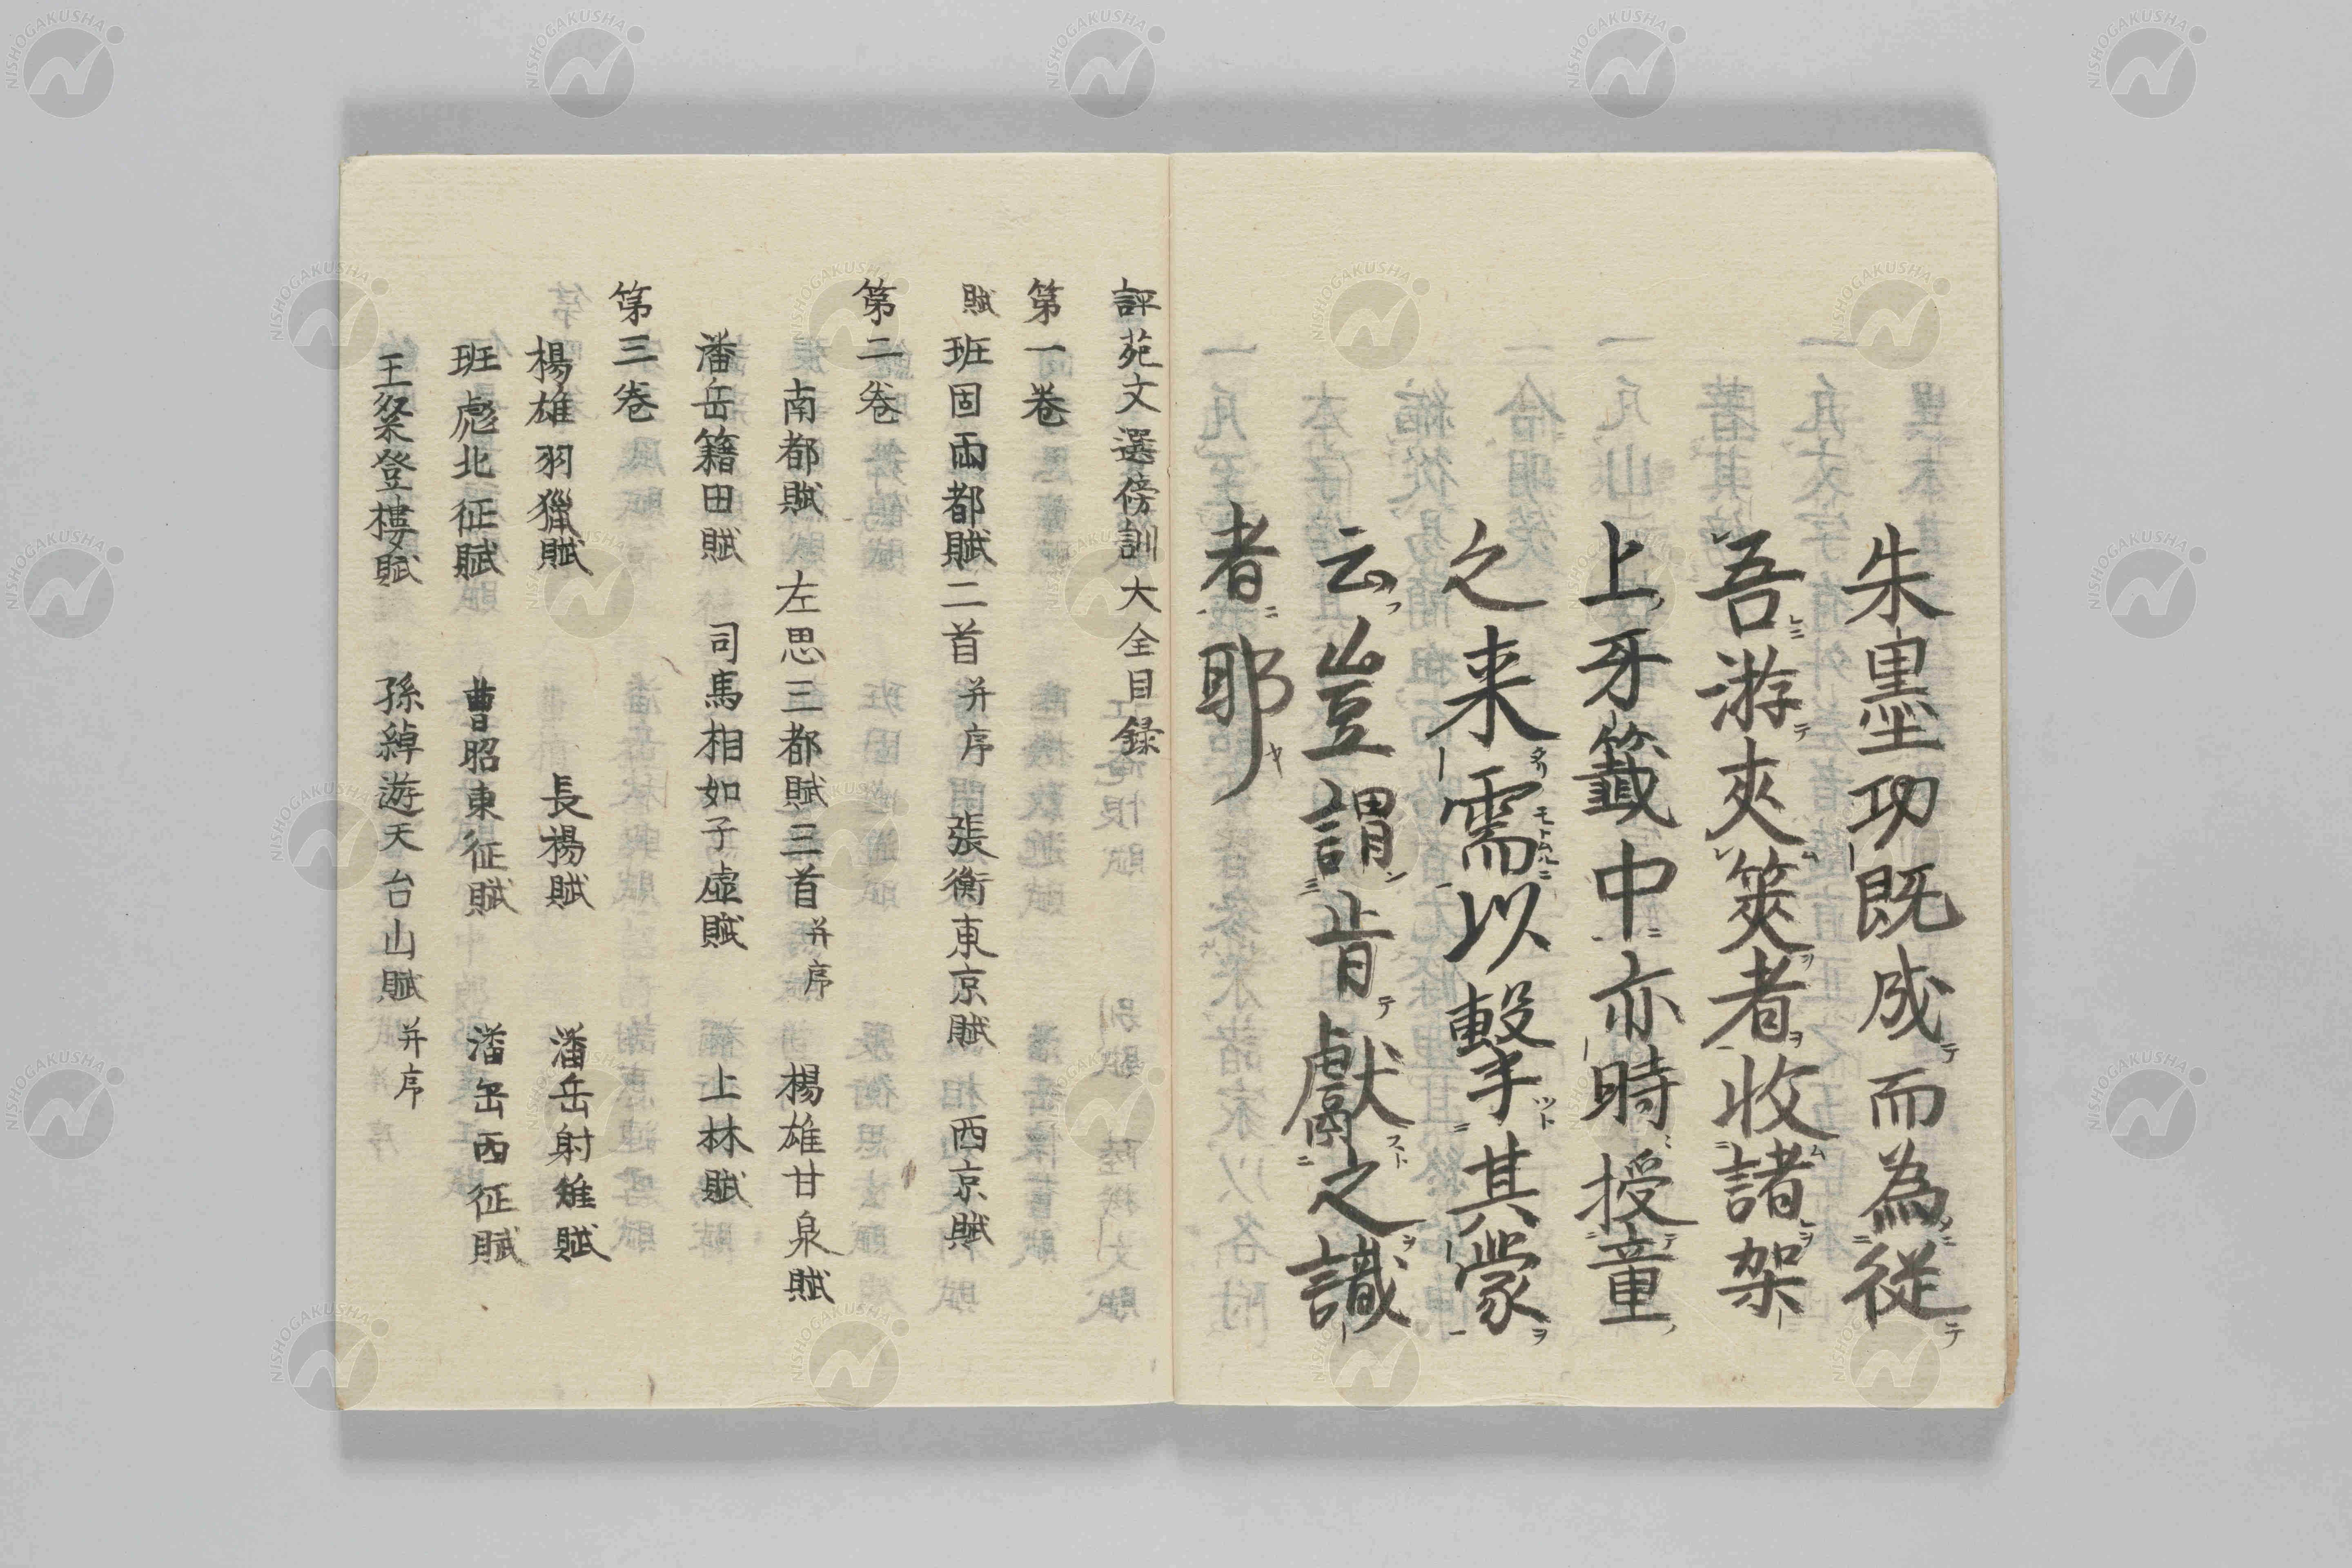 朱墨功既成而為従
吾游夾筴者収諸架
上牙籤中亦時授童
之来需以擊其蒙
云豈謂肯獻之識
者耶
評苑文選傍訓大全目録
第一巻
賦 班固兩都賦二首并序 張衡東京賦 西京賦
第二巻
南都賦 左思三都賦三首并序 楊雄甘泉賦
潘岳籍田賦 司馬相如子虚賦 上林賦
第三巻
楊雄羽獵賦 長楊賦 潘岳射雉賦
班彪北征賦 曹昭東征賦 潘岳西征賦
王粲登樓賦 孫綽遊天台山賦并序
NISHOGAKUSHA